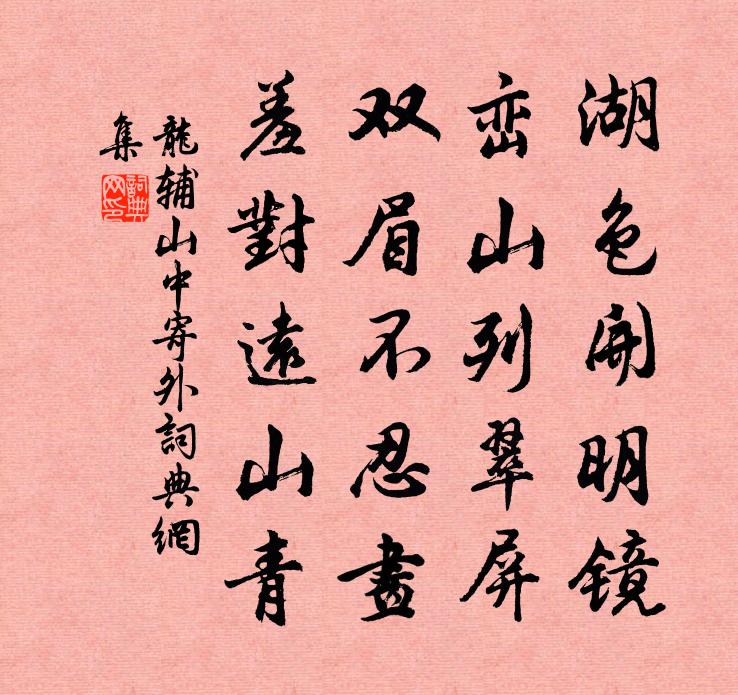 湖色開明镜
峦山列翠屏
双眉不忍畫
羞對遠山青
龍辅山中寄外詞典網
集
詞典网印